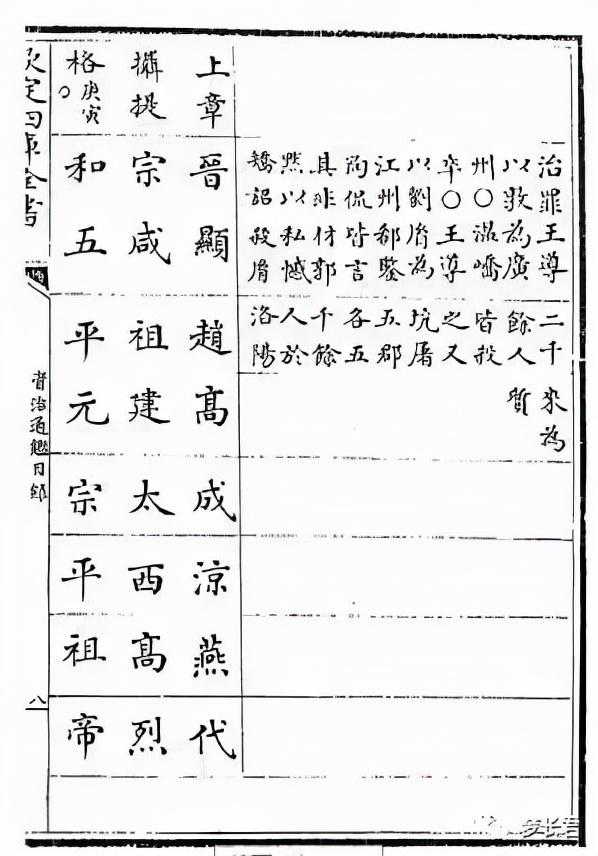 治罪王導
以敦為廣
州○溫嶠
卒○王導
以劉胤為
江州郗鑒
陶侃皆言
其非材郭
黙以私憾
矯詔殺胤
二千
餘人
皆殺
之又
坑屠
五郡
各五
千餘
人於
洛陽
來為
質
上章
攝提
格庚寅○
晉顯
宗咸
和五
趙高
祖建
平元
成
太
宗
涼
西
平
燕
高
祖
代
烈
帝
欽定四庫全書
資治通鑑目錄
八